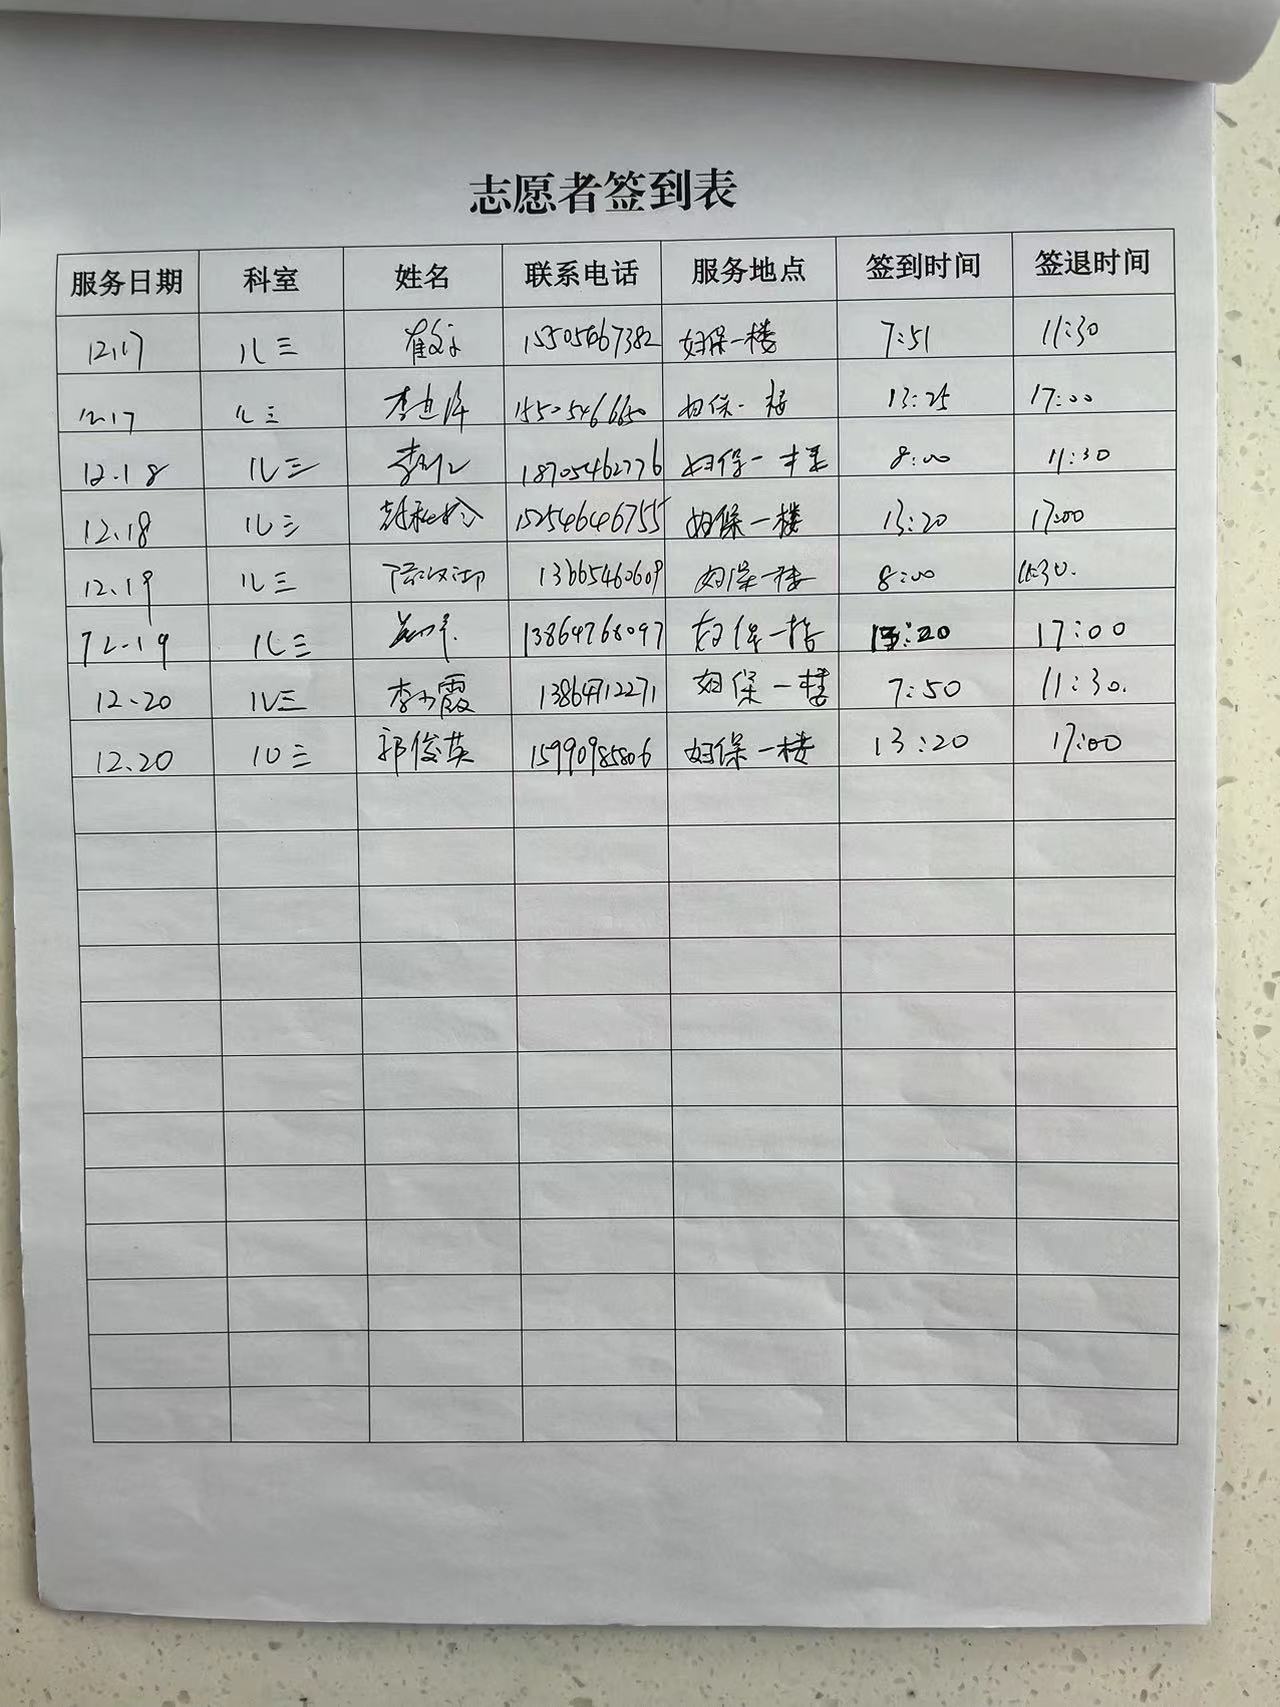 志愿者签到表
服务日期 科室 姓名 联系电话 服务地点 签到时间 签退时间
12.17 儿三 15505467382 妇保一楼 7:51 11:30
12.17 儿三 妇保一楼 13:25 17:00
12.18 儿三 18705462776 妇保一楼 8:00 11:30
12.18 儿三 15254646755 妇保一楼 13:20 17:00
12.19 儿三 13665460609 妇保一楼 8:00 11:30.
12.19 儿三 13864768097 妇保一楼 13:20 17:00
12.20 儿三 李小霞 13864712271 妇保一楼 7:50 11:30.
12.20 儿三 郭俊英 15990985806 妇保一楼 13:20 17:00